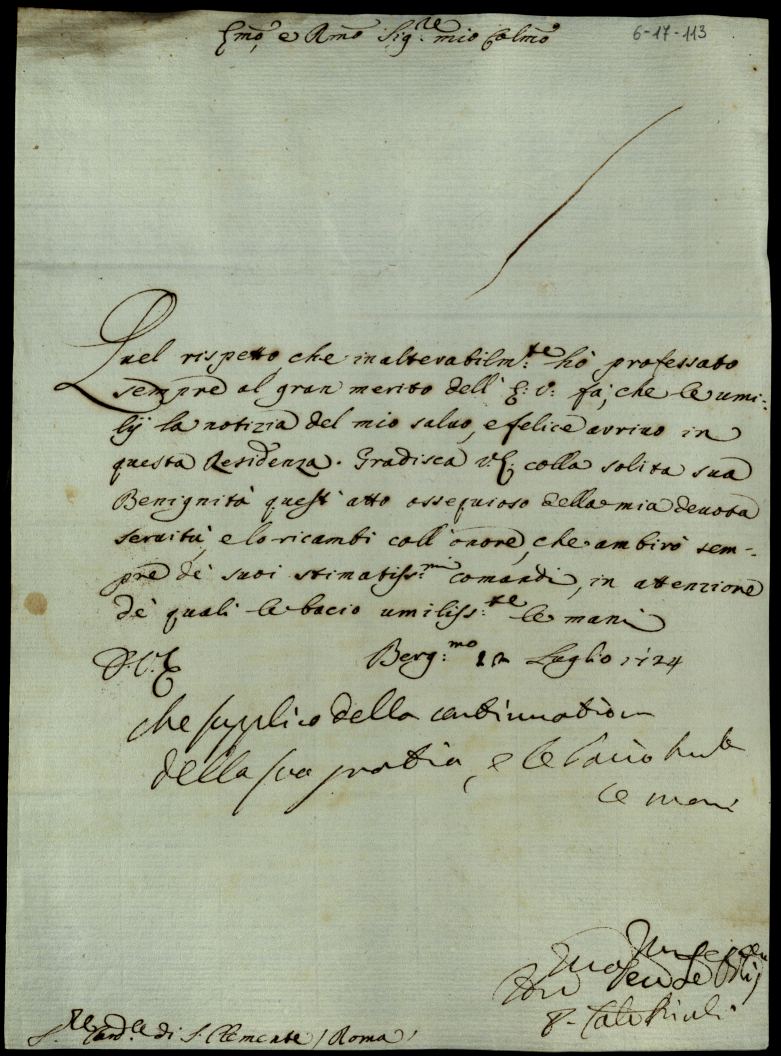 Emo, e Rmo Sig.re mio Colmo
6-17-113
Quel rispetto, che inalterabilm.te hò professato
sempre al gran merito dell' E. V. fà, che le umi-
lij la notizia del mio saluo, e felice arriuo in
questa Residenza. Gradisca V.E. colla solita sua
Benignità quest' atto ossequioso della mia deuota
seruitù, e lo ricambi coll' onore, che ambirò sem-
pre de' suoi stimatiss.mi comandi, in attenzione
de' quali le bacio umiliss.te le mani
D. V. E.
Berg.mo 12 Luglio 1724
che supplico della continuatione
della sua gratia, e le bacio hu.te
le mani
S.re Card.le di S. Clemente / Roma /